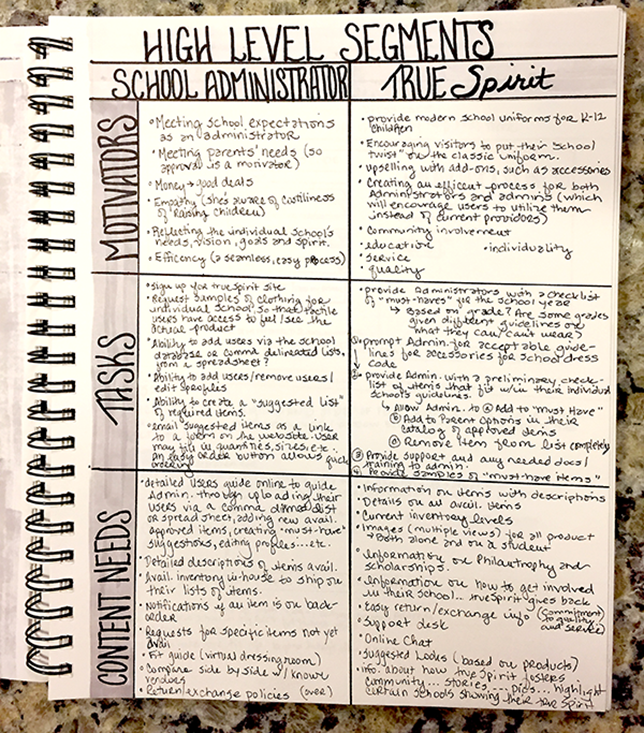 HIGH LEVEL SEGMENTS
SCHOOL ADMINISTRATOR
TRUE Spirit
MOTIVATORS
• Meeting school expectations
as an administrator
• Meeting parents' needs (so
approval is a motivator)
• Money → good deals
• Empathy (she's aware of costliness
of raising children)
• Reflecting the individual school's
needs, vision, goals and spirit.
• Efficency (a seamless, easy process)
• provide modern school uniforms for K-12
children
• Encouraging visitors to put their "school
twist" on the classic uniform.
• upselling with add-ons, such as accessories
• Creating an efficent process for both
Administrators and admins (which
will encourage users to utilize them
instead of current providors)
• Community involvement
• education • individuality
• service
• quality
TASKS
• sign up for true spirit site
• Request samples of clothing for
individual school, so that tactile
users have access to feel/see the
actual product
• Ability to add users via the school
database or comma delineated lists,
from a spreadsheet?
• Ability to add users/remove users/
edit profiles
• Ability to create a "suggested list"
of required items.
• email suggested items as a link
to a form on the website. User
may fill in quantities, sizes, etc.
An easy order button allows quick
ordering
• provide Administrators with a checklist
of "must-haves" for the school year
↳ Based on grade? Are some grades
given different guidelines on
what they can/can't wear?
prompt Admin. for acceptable guide-
lines for accessories for school dress
code
provide Admin. with a preliminary check-
list of items that fit w/in their individual
school's guidelines.
↳ Allow Admin. to ⓐ Add to "must Have"
ⓑ Add to Parent Options in their
catalog of approved items
ⓒ Remove item from list completely
③ Provide support and any needed docs/
training to admin.
④ Provide samples of "must-have items"
CONTENT NEEDS
• detailed users guide online to guide
Admin. through uploading their
users via a comma list
or spread sheet, adding new avail.
approved items, creating "must-have"
suggestions, editing profiles...etc.
• Detailed descriptions of items avail.
• Avail. inventory in-house to ship on
their lists of items.
• Notifications if an item is on back-
order
• Requests for specific items not yet
avail
• Fit guide (virtual dressing room)
• Compare side by side w/ known
vendors
• Return/exchange policies (over)
• Information on items with descriptions
• Details on all avail. items
• Current inventory levels
• Images (multiple views) for all product
→ both alone and on a student
• Information on Philanthropy and
scholarships.
• Information on how to get involved
in their school... true spirit gives back
• easy return/exchange info (commitment
to quality
and service)
• Support desk
• Online Chat
• Suggested Looks (based on products)
• Info. about how true spirit fosters
community... stories.... pics... highlight
certain schools showing their true spirit